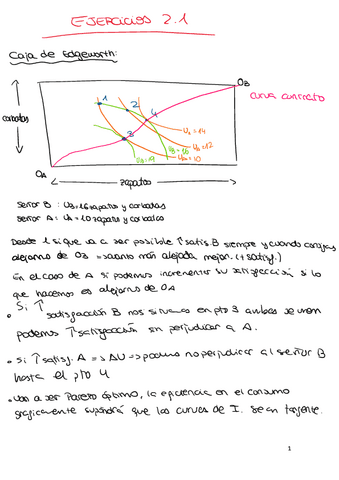 EJERCICIOS 2.1
Caja de Edgeworth:
OB
curva contrato
corbatas
1
2
4
3
UA=14
UA=12
UB=16
UB=19
UA=10
OA
zapatos
Señor B : UB=16 zapatos y corbatas
Señor A: UA=10 zapatos y corbatas
Desde 1 si que va a ser posible ↑satis.B siempre y cuando
alejarnos de OB =>cuanto más alejada mejor. (+satisf.)
En el caso de A si podemos incrementar su satisfacción si lo
que hacemos es alejarnos de OA
• Si ↑
satisfacción B nos situamos en pto 3 ambas se unen
podemos ↑satisfacción sin perjudicar a A.
• Si ↑satisf. A => ΔU => podemos no perjudicar al señor B
hasta el pto 4
• Van a ser Pareto óptimo, la eficiencia en el consumo
graficamente supondrá que las curvas de I. sean tangente.
1